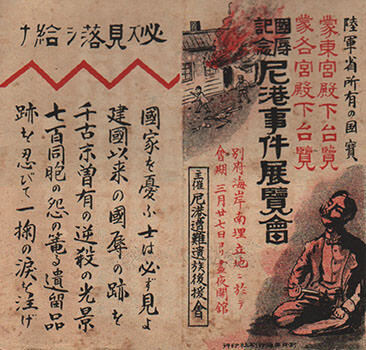 陸軍省所有の國寶
蒙東宮殿下台覧
蒙各宮殿下台覧
國辱
記念
尼港事件展覽會
別府海岸南埋立地ニ於テ
會期 三月廿七日ヨリ晝夜開館
主催 尼港遭難遺族後援會
必ズ見落シ給フナ
國家を憂ふ士は必ず見よ
建國以来の國辱の跡を
千古未曽有の逆殺の光景
七百同胞の怨の篭る遺留品
跡を忍びて一掬の涙を泣げ